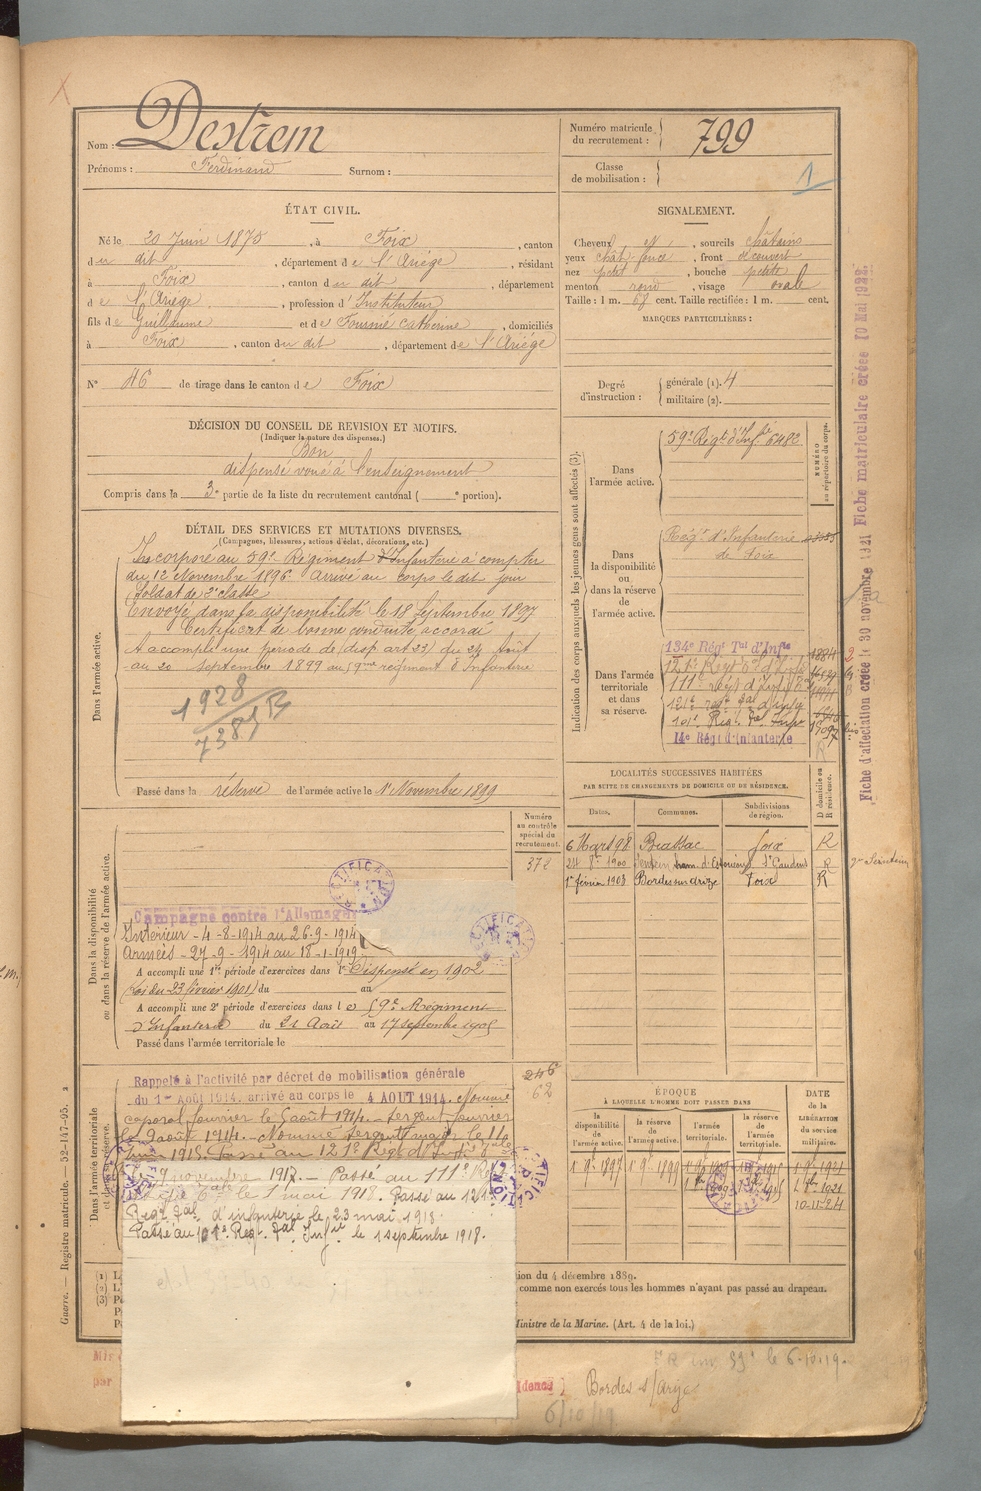 Nom : Destrem
Prénoms : Ferdinand Surnom :
Numéro matricule du recrutement : 799
Classe de mobilisation : 1
ÉTAT CIVIL.
Né le 20 Juin 1875, à Foix, canton
du dit, département de l'Ariège, résidant
à Foix, canton du dit, département
de l'Ariège, profession d'Instituteur
fils de Guillaume et de Fournié Catherine, domiciliés
à Foix, canton du dit, département de l'Ariège
N° 46 de tirage dans le canton de Foix
SIGNALEMENT.
Cheveux et, sourcils châtains
yeux chat. foncé, front découvert
nez petit, bouche petite
menton rond, visage ovale
Taille : 1 m. 68 cent. Taille rectifiée : 1 m. cent.
MARQUES PARTICULIÈRES :
Degré d'instruction : générale (1). 4
militaire (2).
DÉCISION DU CONSEIL DE REVISION ET MOTIFS.
(Indiquer la nature des dispenses.)
Bon
dispensé voué à l'enseignement
Compris dans la 3e partie de la liste du recrutement cantonal ( e portion).
DÉTAIL DES SERVICES ET MUTATIONS DIVERSES.
(Campagnes, blessures, actions d'éclat, décorations, etc.)
Dans l'armée active.
Incorporé au 59e Régiment d'Infanterie à compter
du 12 Novembre 1896. Arrivé au corps le dit jour
Soldat de 2e classe
Envoyé dans la disponibilité le 18 Septembre 1897
Certificat de bonne conduite accordé
A accompli une période de (disp art 23) du 24 Août
au 20 septembre 1899 au 59me régiment d'Infanterie
1928
7381 B
Passé dans la réserve de l'armée active le 1er Novembre 1899
Indication des corps auxquels les jeunes gens sont affectés (3).
NUMÉRO au répertoire du corps.
Dans l'armée active.
59e Régt d'Inf.ie 6482
Dans la disponibilité ou dans la réserve de l'armée active.
Régt d'Infanterie
de Foix
Dans l'armée territoriale et dans sa réserve.
134e Régt Tal d'Infie 1884
121e Régt
111e régt
121e regt
101e Regt
14e Régt d'Infanterie
LOCALITÉS SUCCESSIVES HABITÉES
PAR SUITE DE CHANGEMENTS DE DOMICILE OU DE RÉSIDENCE.
Dates. Communes. Subdivisions de région. D domicile ou R résidence.
6 Mars 98 Biassac Foix R
24 8bre 1900 St Gaudens R
1er février 1903 Bordes sur Arize Foix R
Numéro au contrôle spécial du recrutement.
372
Dans la disponibilité ou dans la réserve de l'armée active.
Campagne contre l'Allemagne
Intérieur - 4-8-1914 au 26-9-1914
Armées - 27-9-1914 au 18-1-1919
A accompli une 1re période d'exercices dans l Dispensé en 1902
(Loi du 23 février 1901) du au
A accompli une 2e période d'exercices dans le 59e Régiment
d'Infanterie du 21 Août au 17 septembre 1905
Passé dans l'armée territoriale le
Dans l'armée territoriale et dans sa réserve.
246
62
Rappelé à l'activité par décret de mobilisation générale
du 1er Août 1914. arrivé au corps le 4 AOUT 1914. Nommé
caporal fourrier le 5 août 1914. Sergent fourrier
le 9 août 1914. Nommé Sergent
Juin 1915. Passé au 121e Régt d'Inf.
novembre 1917. — Passé au 111e Régt
le 1 mai 1918. Passé au 121e
Regt Tal d'infanterie le 23 mai 1918.
Passé au 101e Regt. Tal Infie le 1 septembre 1918.
ÉPOQUE
À LAQUELLE L'HOMME DOIT PASSER DANS
la disponibilité de l'armée active. la réserve de l'armée active. l'armée territoriale. la réserve de l'armée territoriale.
DATE de la LIBÉRATION du service militaire.
1 9bre 1897 1 9bre 1899
1 9bre 1921
10-11-24
(1) L
(2) L'
(3) P
ion du 4 décembre 1889.
comme non exercés tous les hommes n'ayant pas passé au drapeau.
Ministre de la Marine. (Art. 4 de la loi.)
Guerre. — Registre matricule. — 52-147-95. 2
Fiche d'affectation créée le 30 novembre 1921 Fiche matriculaire créée 10 Mai 1922.
Mis
par
(dence) Bordes s/Arize
le 6-10-19.
6/10/19